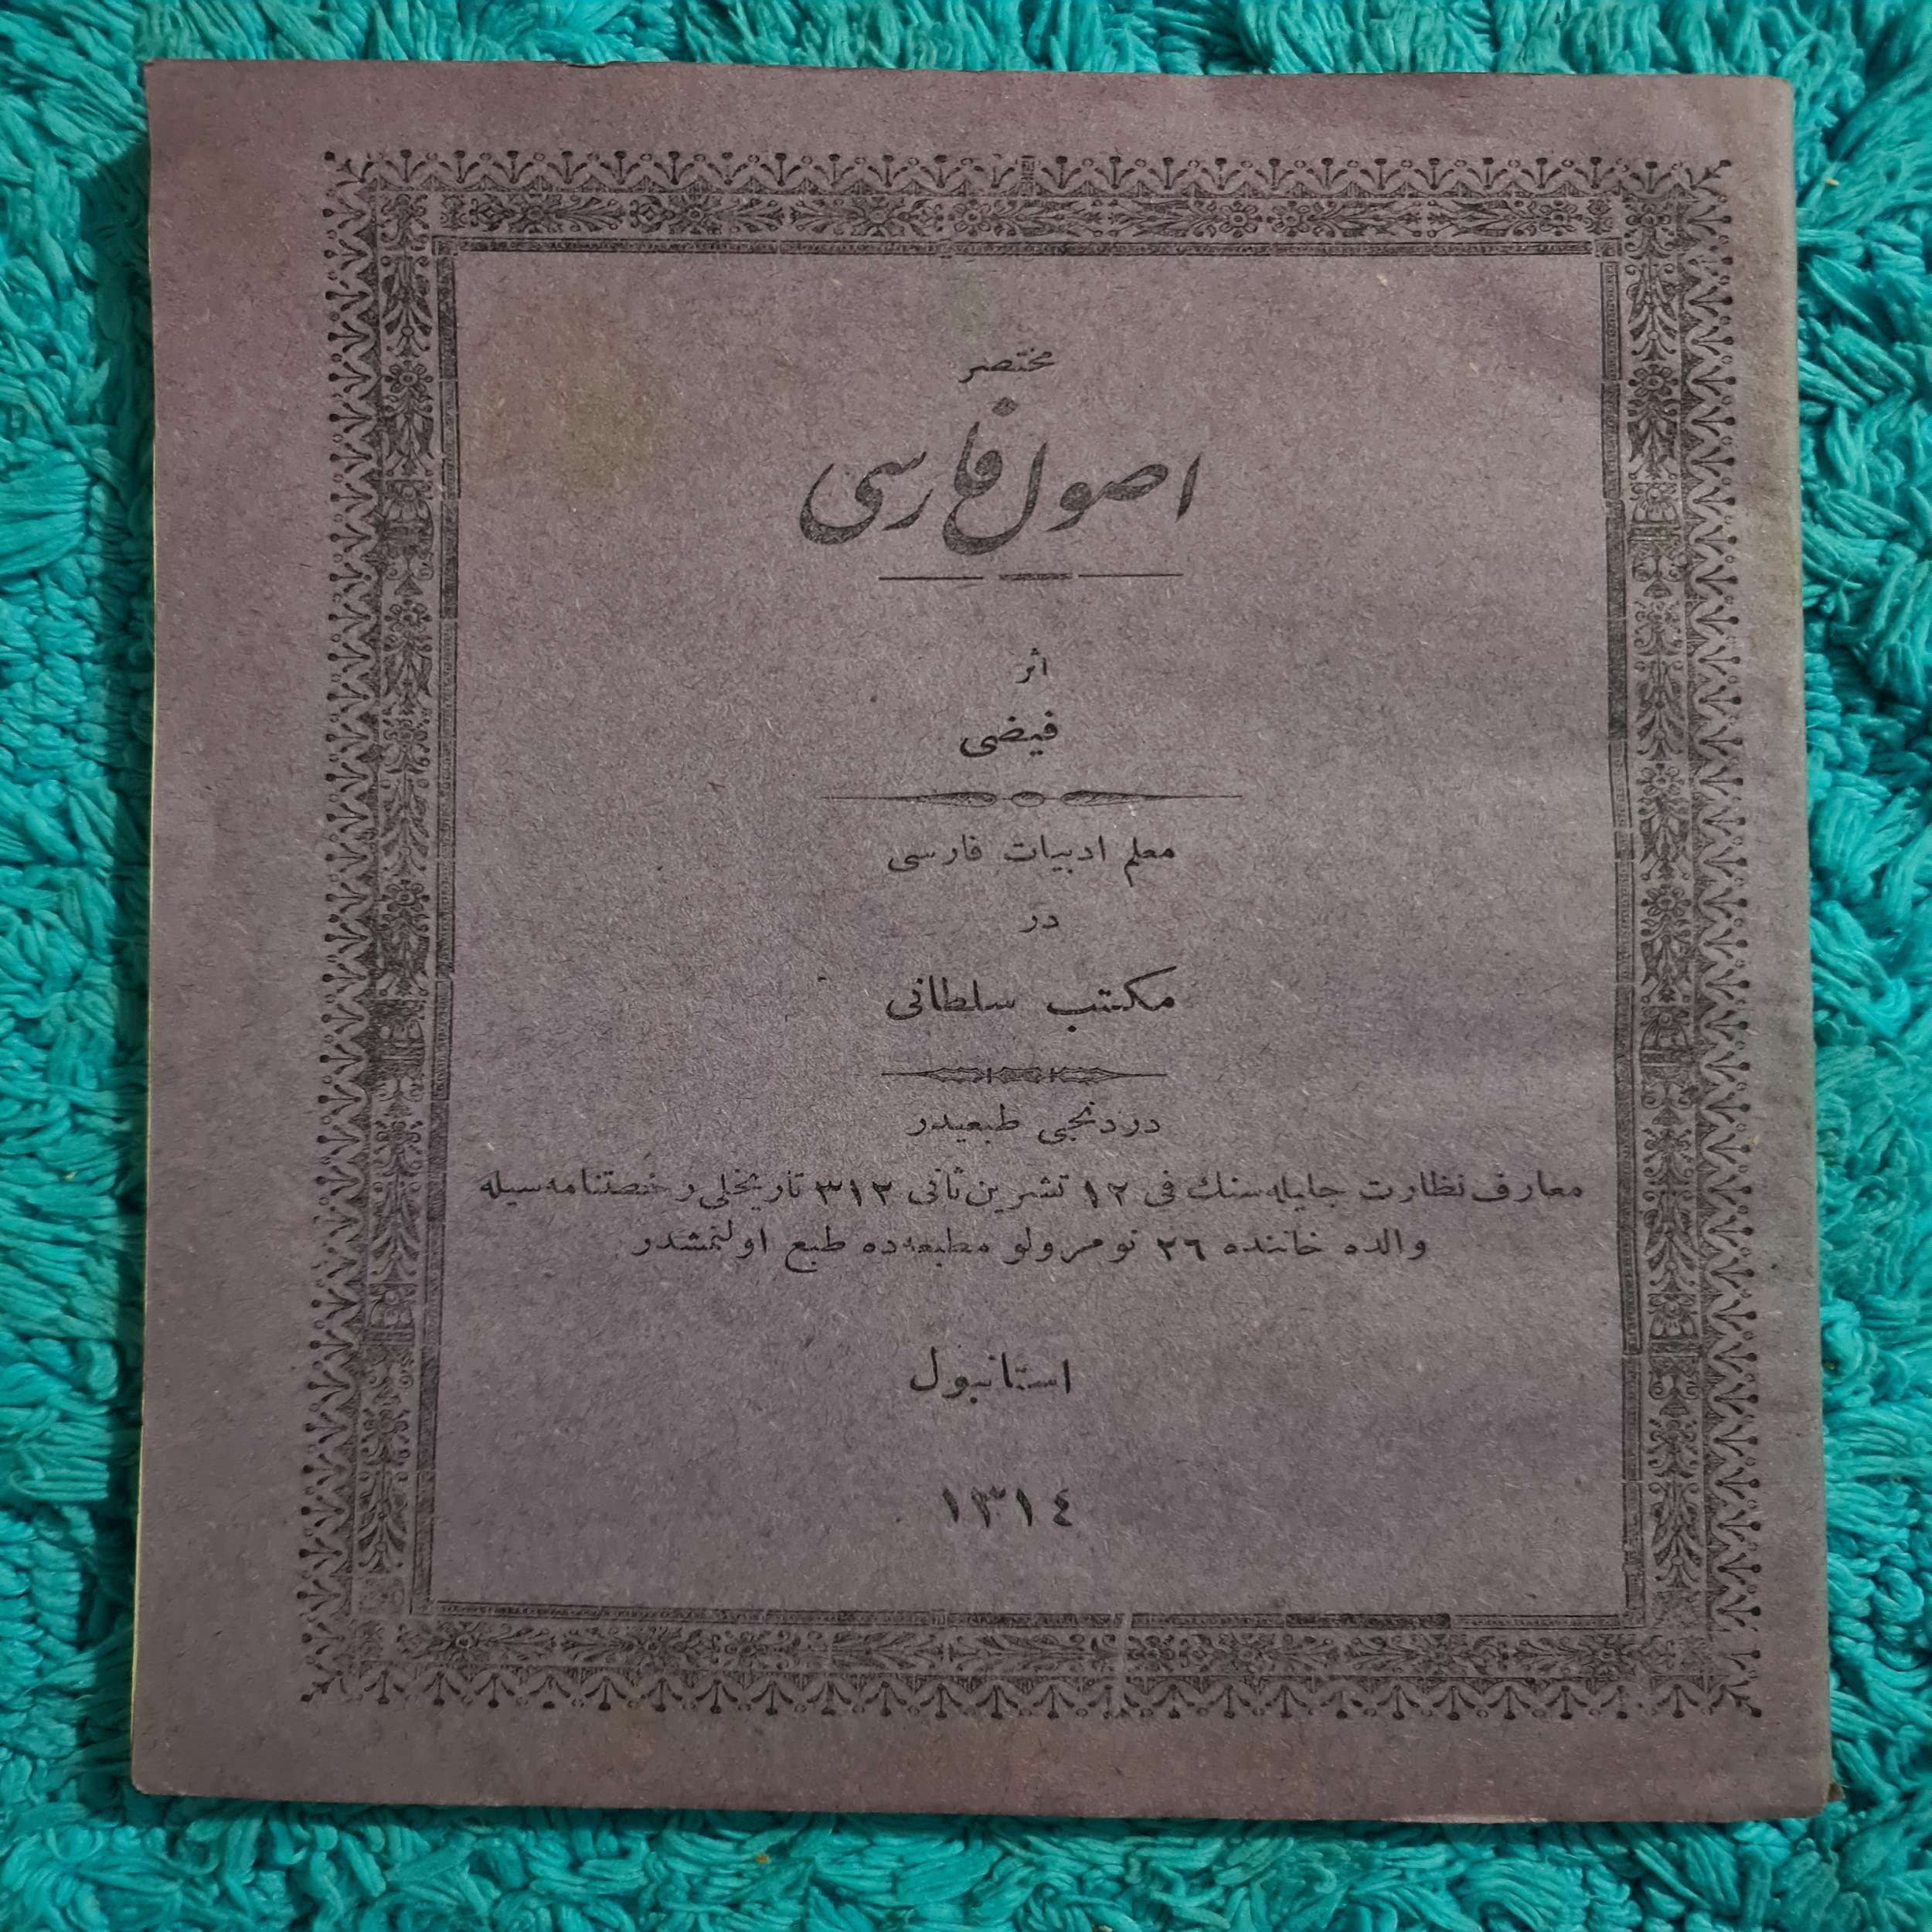 مختصر
اصول فارسی
اثر
فیضی
معلم ادبیات فارسی
در
مکتب سلطانی
دردنجی طبعیدر
معارف نظارت جلیله‌سنك فی ١٢ تشرین ثانی ٣١٢ تاریخلی رخصتنامه‌سیله
والده خاننده ٢٦ نومرولو مطبعه‌ده طبع اولنمشدر
استانبول
١٣١٤